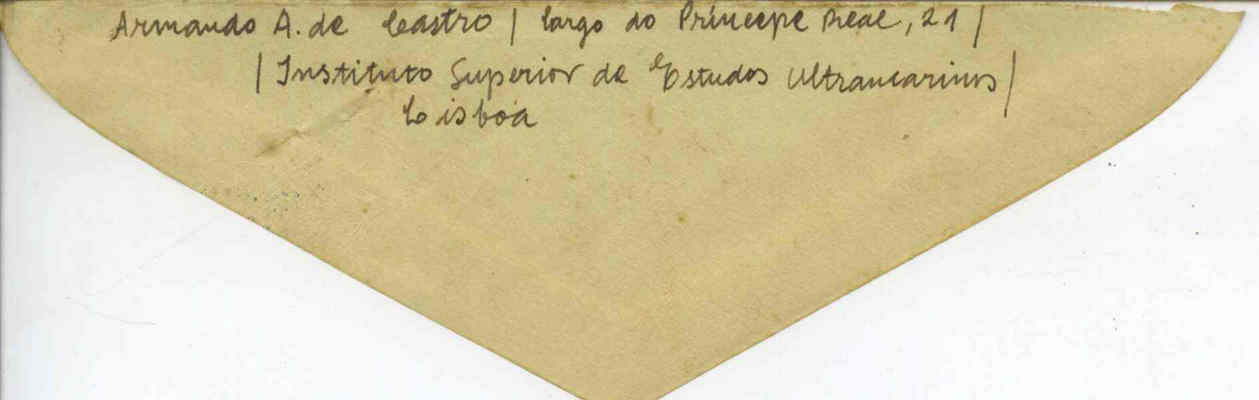 Armando A. de Castro | largo do Príncepe Real, 21 |
| Instituto Superior de Estudos Ultramarinos |
Lisboa